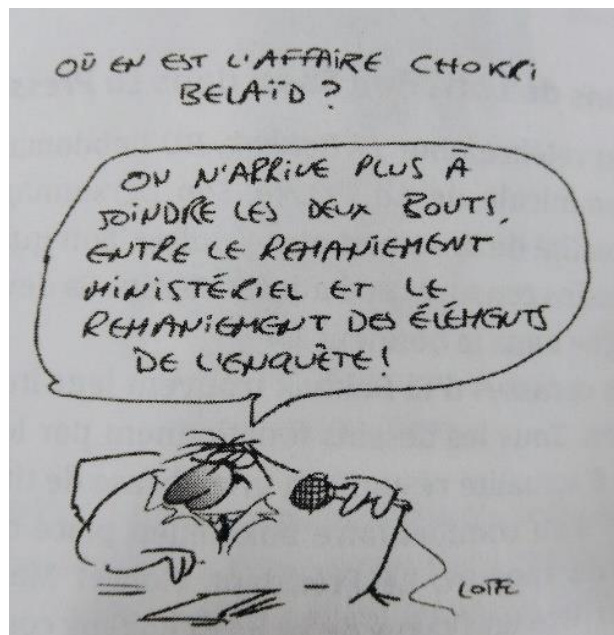 OÙ EN EST L'AFFAIRE CHOKRI
BELAÏD?
ON N'ARRIVE PLUS À
JOINDRE LES DEUX BOUTS,
ENTRE LE REMANIEMENT
MINISTÉRIEL ET LE
REMANIEMENT DES ÉLÉMENTS
DE L'ENQUÊTE!